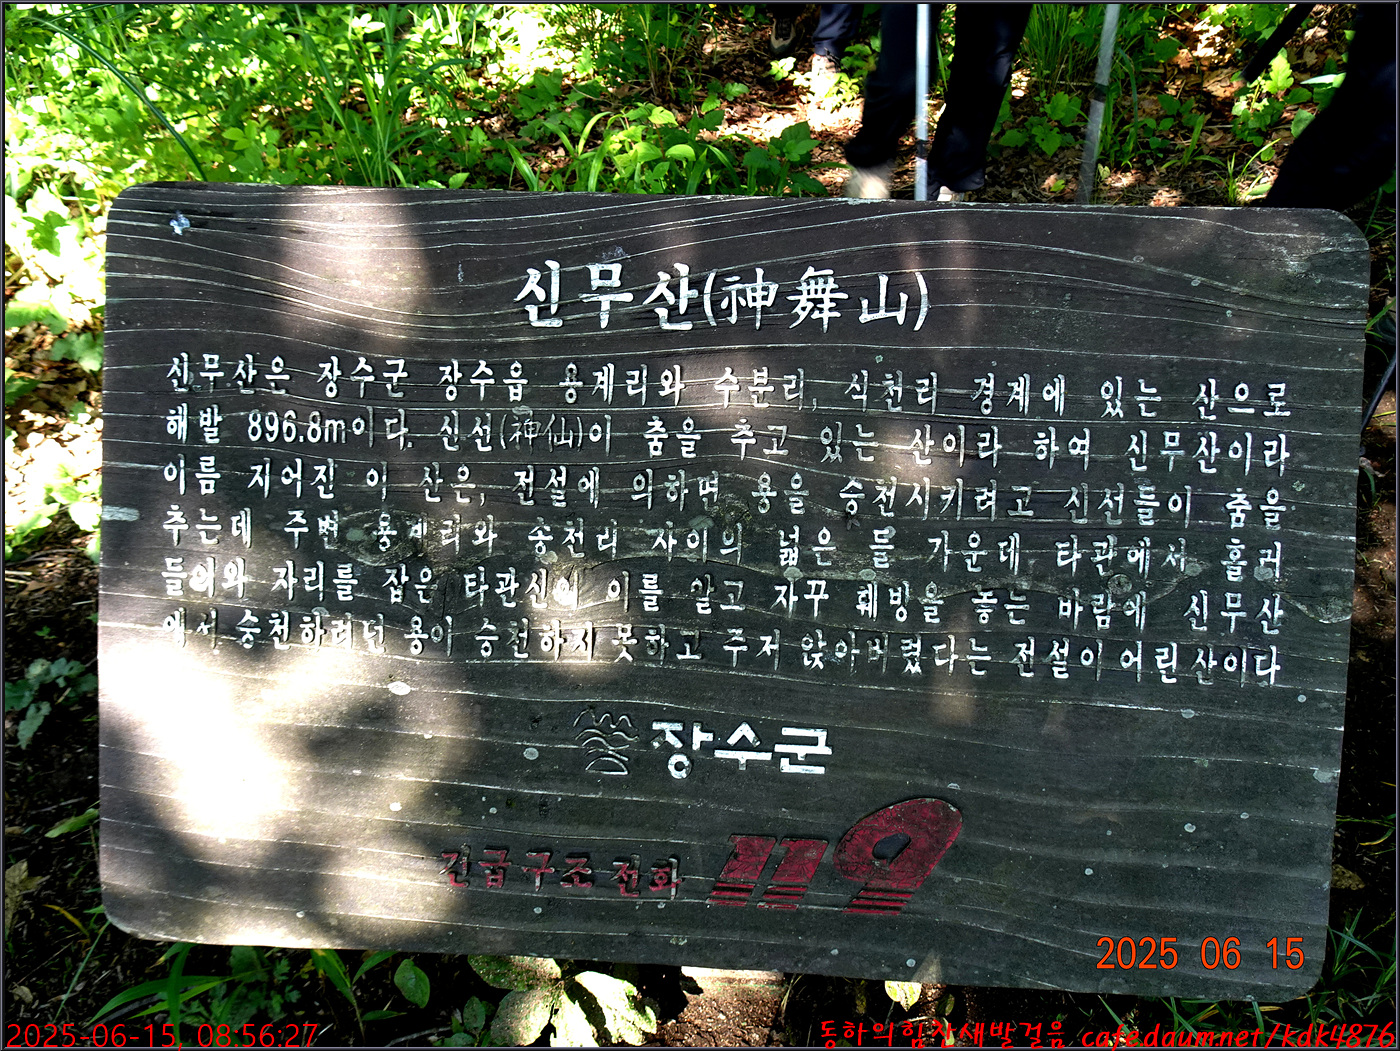 신무산(神舞山)
신무산은 장수군 장수읍 용계리와 수분리, 식천리 경계에 있는 산으로
해발 896.8m이다. 신선(神仙)이 춤을 추고 있는 산이라 하여 신무산이라
이름 지어진 이 산은, 전설에 의하면 용을 승천시키려고 신선들이 춤을
추는데 주변 용계리와 송천리 사이의 넓은 들 가운데 타관에서 흘러
들어와 자리를 잡은 타관신이 이를 알고 자꾸 훼방을 놓는 바람에 신무산
에서 승천하려던 용이 승천하지 못하고 주저 앉아버렸다는 전설이 어린 산이다
장수군
긴급구조 전화 119
2025 06 15
2025-06-15, 08:56:27
동하의힘찬새발걸음 cafe.daum.net/kdk4876